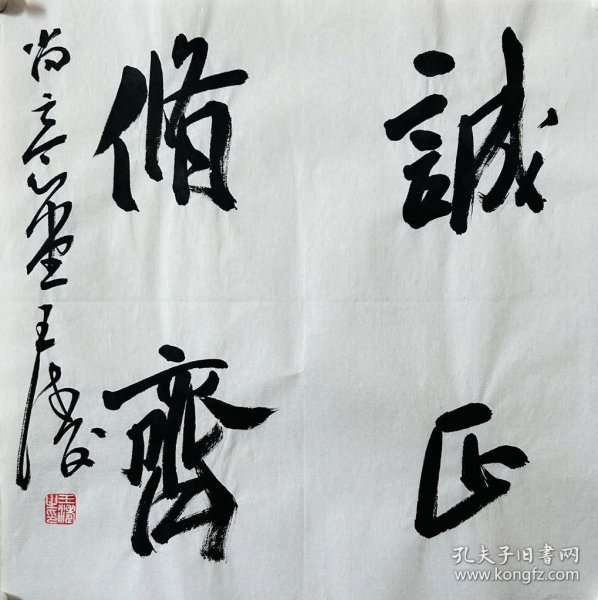 誠正
脩齊
尚意堂王涛
孔夫子旧书网
www.kongfz.com